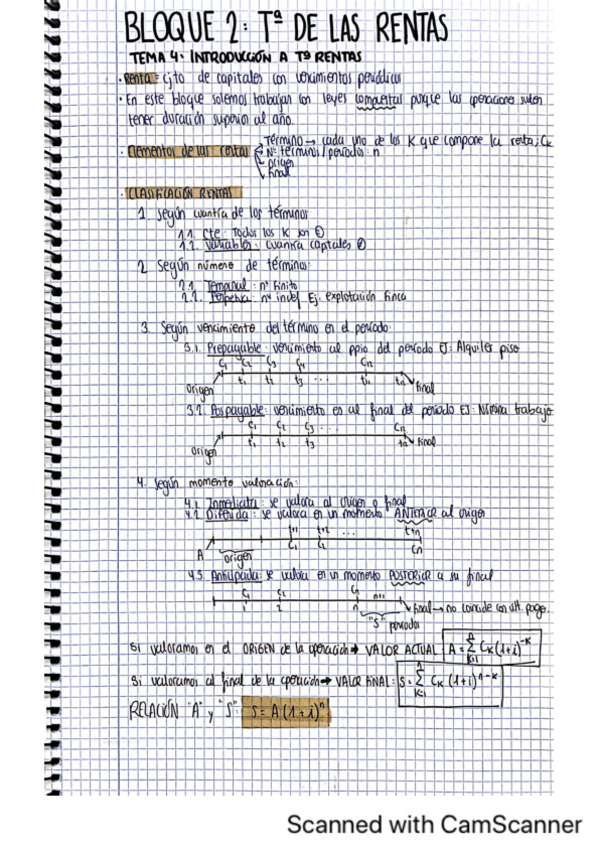 BLOQUE 2: Tª DE LAS RENTAS
TEMA 4: INTRODUCCIÓN A Tª RENTAS
· Renta = cjto de capitales con vencimientos periódicos
· En este bloque solemos trabajar con leyes compuestas porque las operaciones suelen
tener duración superior al año.
· Elementos de las rentas
Término → cada uno de los K que compone la renta; Ck
Nº términos / períodos: n
origen
final
· CLASIFICACIÓN RENTAS
1. Según cuantía de los términos
1.1. Cte: Todos los K son =
1.2. Variables: cuantía capitales ≠
2. Según número de términos:
2.1. Temporal: nº finito
2.2. Perpetua: nº indef Ej: explotación finca
3. Según vencimiento del término en el período:
3.1. Prepagable: vencimiento al ppio del período EJ: Alquiler piso
C1 C2 C3 C4 Cn
t1 t2 t3 ... tn-1 tn
origen final
3.2. Pospagable: vencimiento es al final del período EJ: Nómina trabajo
C1 C2 C3 ... Cn
t1 t2 t3 tn final
origen
4. Según momento valoración:
4.1. Inmediata: se valora al origen o final
4.2. Diferida: se valora en un momento ANTERIOR al origen
t+1 t+2 ... t+n
A origen C1 C2 Cn
4.3. Anticipada: se valora en un momento POSTERIOR a su final
C1 C2 Cn n+1
1 2 n final → no coincide con últ. pago.
"S" períodos
Si valoramos en el ORIGEN de la operación → VALOR ACTUAL: A = Σ Ck (1+i)^-k
k=1
Si valoramos al final de la operación → VALOR FINAL: S = Σ Ck (1+i)^n-k
k=1
RELACIÓN "A" y "S": S = A (1+i)^n
Scanned with CamScanner